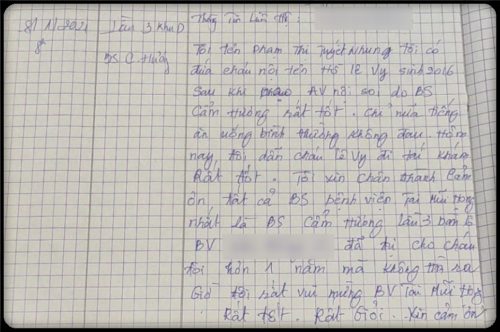 8/1/2021 Lầu 3 khu D Thông Tin Liên Hệ :
8h BS C. Hường
Tôi tên Phạm Thị Tuyết Nhung tôi có
đứa cháu nội tên Hồ Lê Vy sinh 2016
Sau khi AV nội soi do BS
Cẩm Hường rất tốt. chỉ nửa tiếng
ăn uống bình thường không đau. Hôm
nay tôi dẫn cháu Lê Vy đi tái khám
Rất tốt. Tôi xin chân thành Cảm
ơn tất cả BS bệnh viện Tai Mũi Họng
nhất là BS Cẩm Hường Lầu 3
BV đã trị cho cháu
tôi hơn 1 năm mà không
Giờ tôi rất vui mừng BV Tai Mũi Họng
Rất tốt. Rất Giỏi. Xin cảm ơn